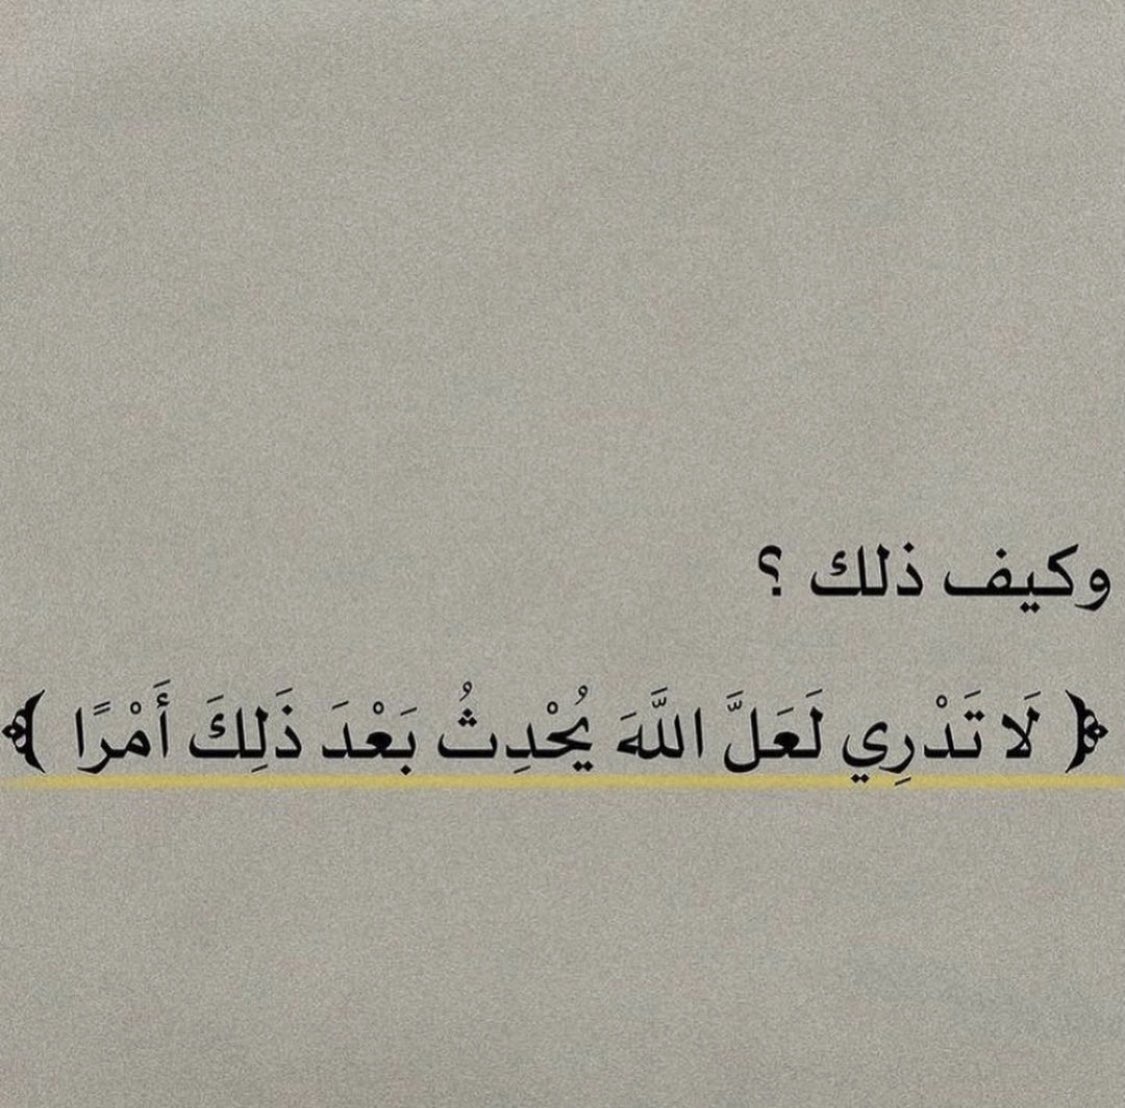 وكيف ذلك ؟
﴿ لَا تَدْرِي لَعَلَّ اللَّهَ يُحْدِثُ بَعْدَ ذَلِكَ أَمْرًا ﴾